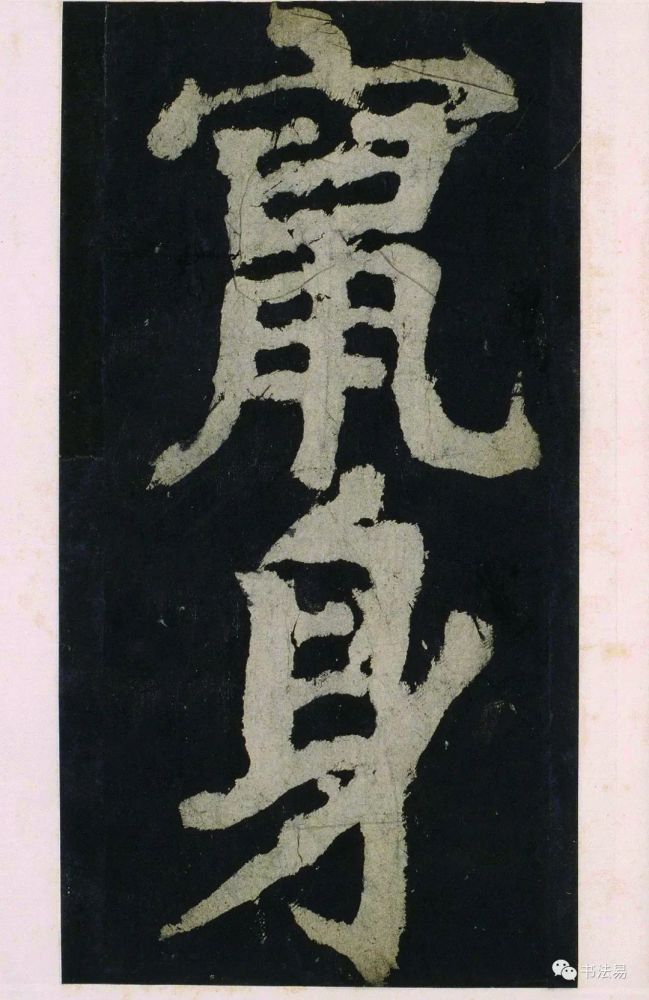 竄身
书法易